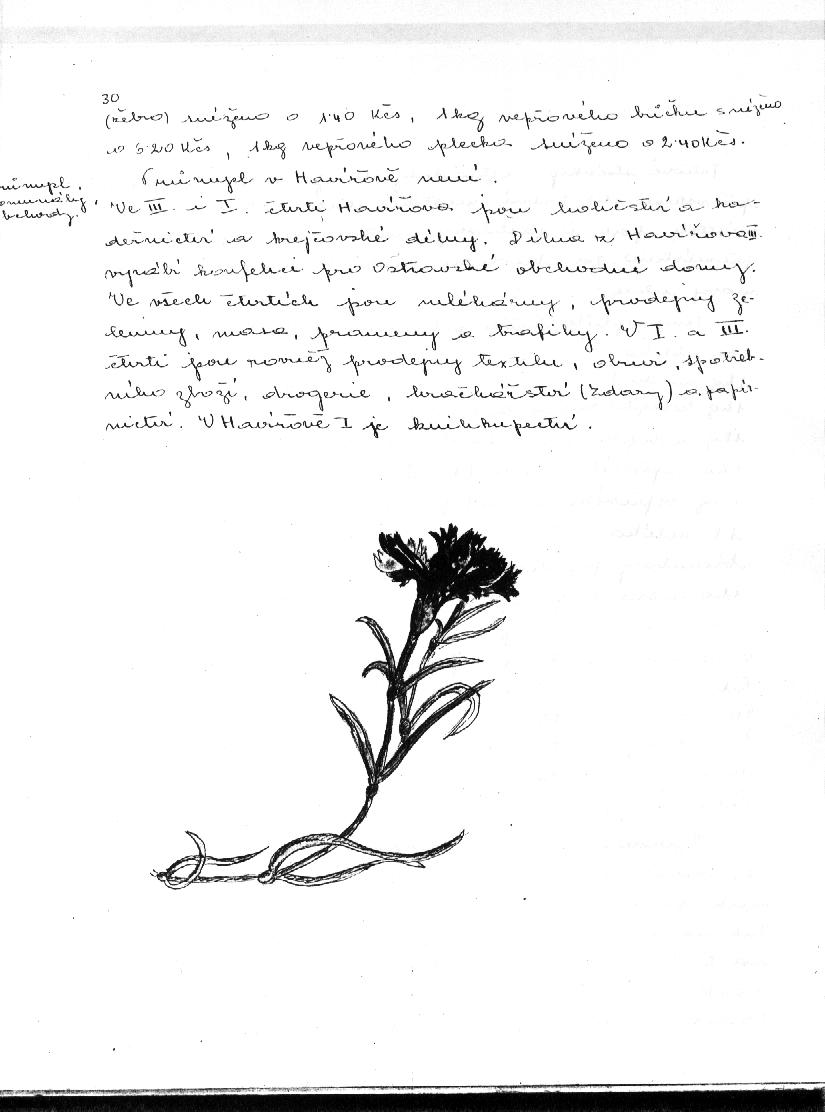 30
(žebro) sníženo o 1.40 Kčs, 1kg vepřového bůčku sníženo
o 5.20 Kčs, 1kg vepřového plecka sníženo o 2.40 Kčs.
Průmysl v Havířově není.
růmysl,
omunály,
bchody.
Ve III. i I. čtvrti Havířova jsou holičství a ka-
deřnictví a krejčovské dílny. Dílna z Havířova III.
vyrábí konfekci pro Ostravské obchodní domy.
Ve všech čtvrtích jsou mlékárny, prodejny ze-
leniny, masa, prameny a trafiky. V I. a III.
čtvrti jsou rovněž prodejny textilu, obuvi, spotřeb-
ního zboží, drogerie, hračkářství (Zdary) a papír-
nictví. V Havířově I je knihkupectví.